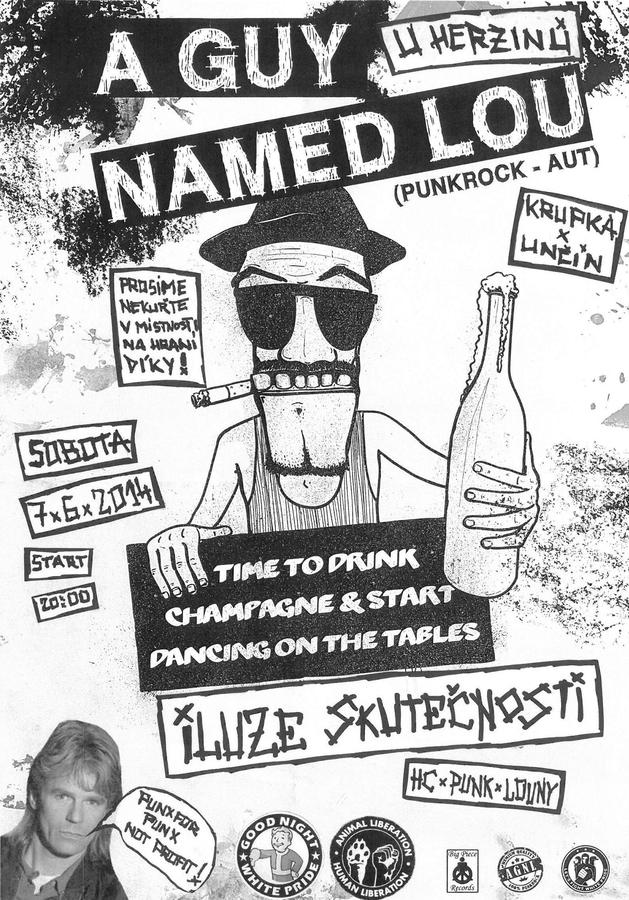 A GUY
NAMED LOU
U HERZINŮ
(PUNKROCK - AUT)
KRUPKA
x
UNČÍN
PROSÍME
NEKUŘTE
V MÍSTNOSTI
NA HRANÍ
DÍKY!
SOBOTA
7x6x2014
START
20:00
TIME TO DRINK
CHAMPAGNE & START
DANCING ON THE TABLES
iLUZE SKUTEČNOSTi
HC x PUNK x LOUNY
PUNX FOR
PUNX
NOT PROFIT!
GOOD NIGHT
WHITE PRIDE
ANIMAL LIBERATION
HUMAN LIBERATION
Big Piece
Records
AGNE